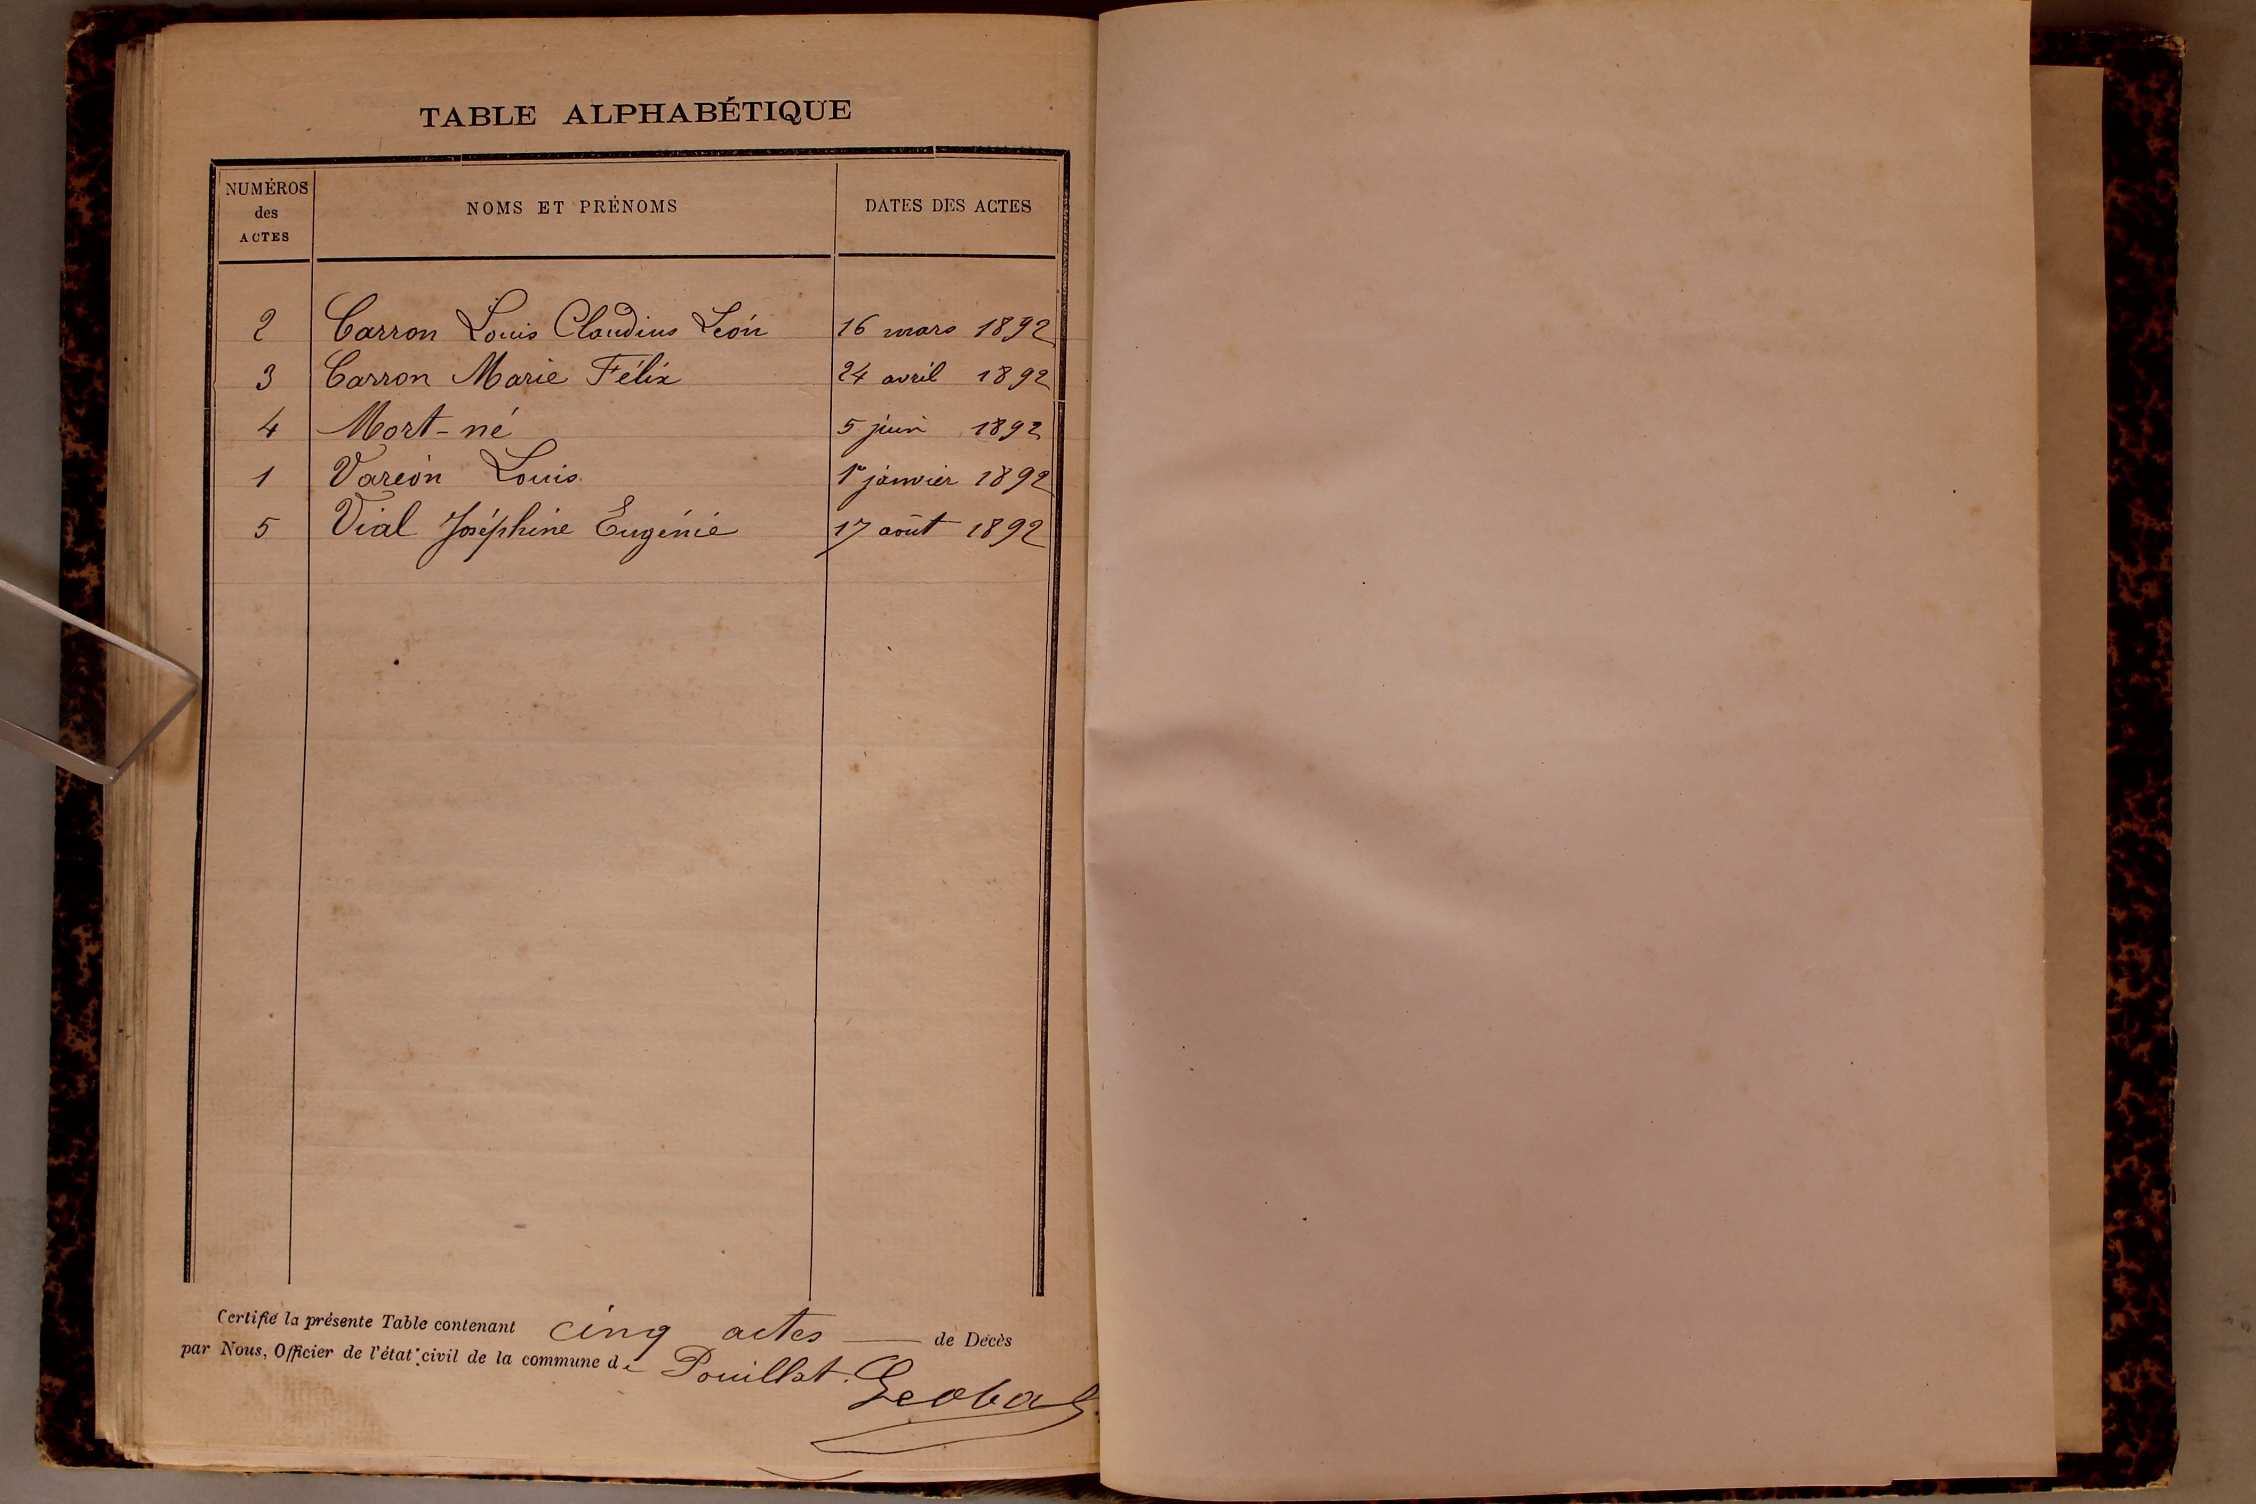 TABLE ALPHABÉTIQUE
NUMÉROS des ACTES NOMS ET PRÉNOMS DATES DES ACTES
2 Carron Louis Claudius Léon 16 mars 1892
3 Carron Marie Félix 24 avril 1892
4 Mort-né 5 juin 1892
1 Varéon Louis 1er janvier 1892
5 Vial Joséphine Eugénie 17 août 1892
Certifié la présente Table contenant cinq actes — de Décès
par Nous, Officier de l'état civil de la commune de Pouillat.